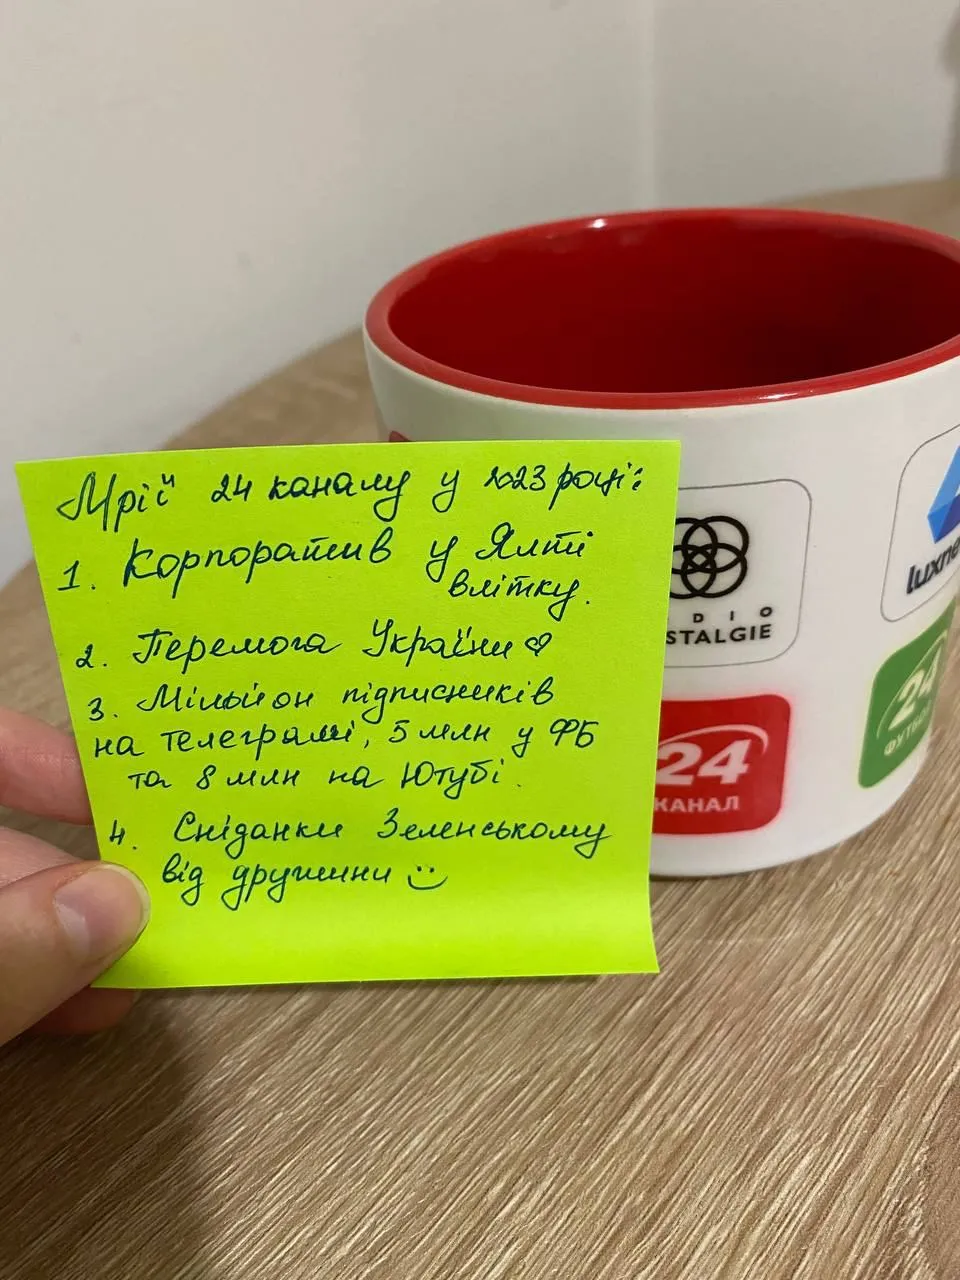 Мрії 24 каналу у 2023 році:
1. Корпоратив у Ялті
влітку.
2. Перемога України
3. Мільйон підписників
на телеграмі, 5 млн у ФБ
та 8 млн на Ютубі.
4. Сніданки Зеленському
від дружини
DIO
STALGIE
24
КАНАЛ
luxne
24
ФУТБО